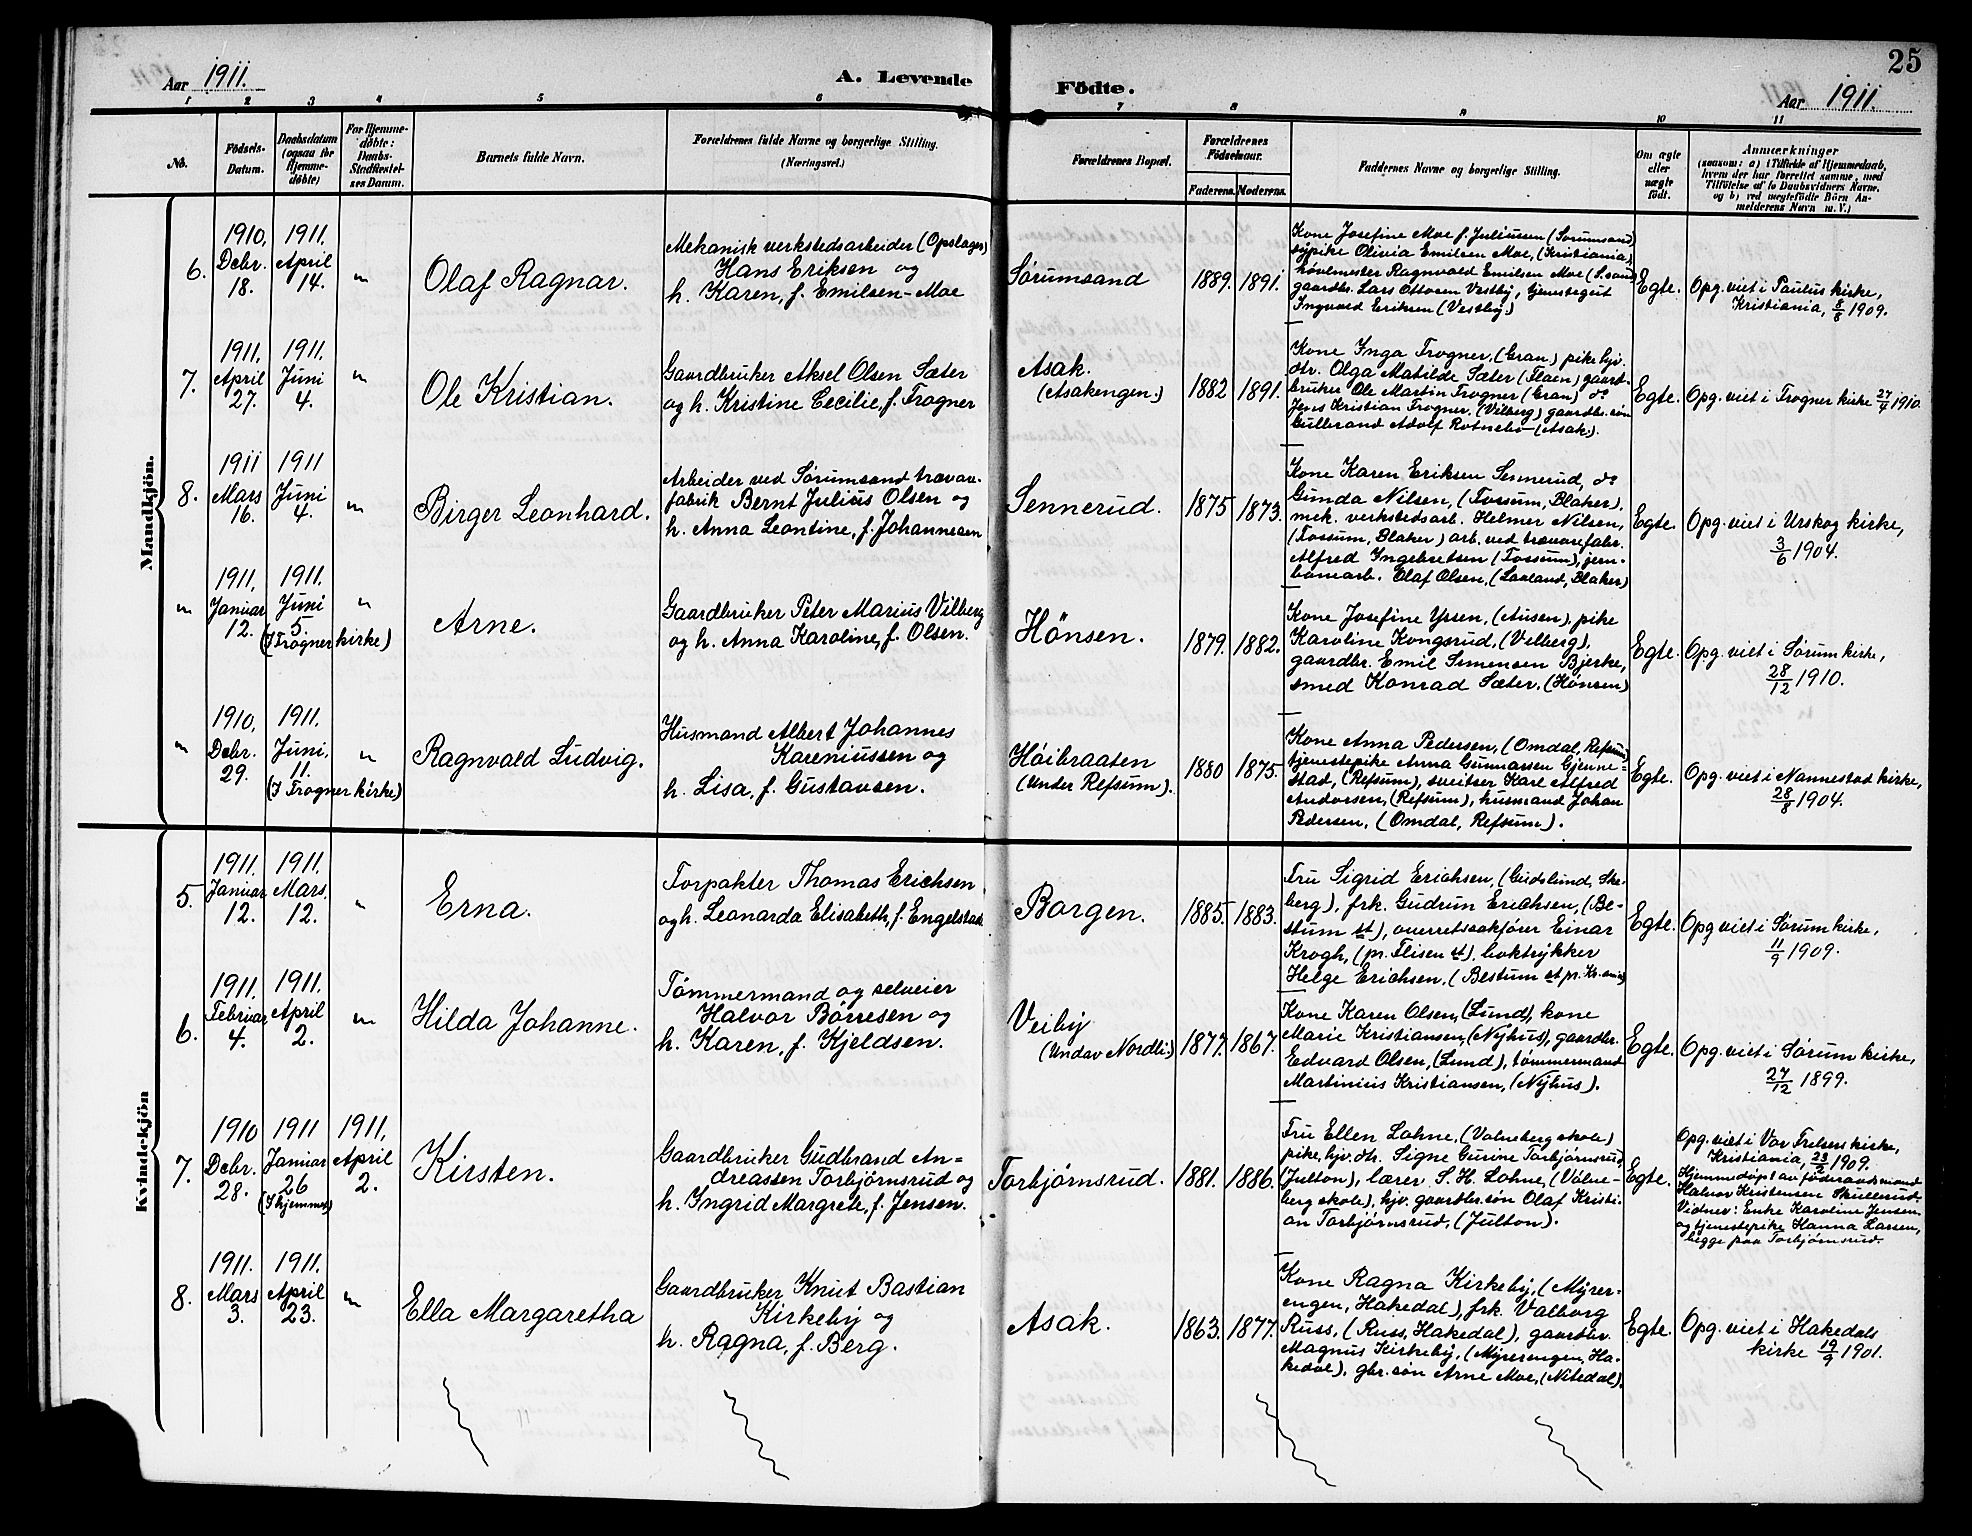 25
Aar 1911.
A. Levende
Födte.
Aar 1911.
1 2 3 4 5 6 7 8 9 10 11
No.
Födsels-
Datum.
Daabsdatum
(ogsaa for
Hjemme-
döbte)
For Hjemme-
döbte:
Daabs-
Stadfæstel-
ses Datum.
Barnets fulde Navn.
Forældrenes fulde Navne og borgerlige Stilling.
(Næringsvei.)
Forældrenes Bopæl.
Forældrenes
Födselsaar.
Faderens. Moderens.
Faddernes Navne og borgerlige Stilling.
Om ægte
eller
uægte
födt.
Anmærkninger
(saasom: a) i Tilfælde af Hjemmedaab,
hvem der har forrettet samme, med
Tilföielse af to Daabsvidners Navne,
og b) ved uegtefödte Börn An-
melderens Navn m. V.)
Mandkjön.
6.
1910,
Decbr.
18.
1911.
April
14.
"
Olaf Ragnar.
Mekanisk verkstedsarbeider (Opslager)
Hans Eriksen og
h. Karen, f. Emilsen-Moe
Sørumsand
1889. 1891.
Kone Josefine Moe f. Juliussen (Sørumsand)
sypike Olivia Emilsen Moe, (Kristiania),
høvlmester Ragnvald Emilsen Moe (S.sand)
gaardbr. Lars Ottersen Vestby, tjenstegut
Ingvald Eriksen (Vestby).
Egte.
Opg. viet i Paulus kirke,
Kristiania, 8/8 1909.
7.
1911.
April
27.
1911.
Juni
4.
"
Ole Kristian.
Gaardbruker Aksel Olsen Sæter
og h. Kristine Cecilie, f. Trogner
Asak.
(Asakengen.)
1882 1891.
Kone Inga Trogner, (Gran) pike hjv.
dtr. Olga Matilde Sæter (Flaen) gaard-
bruker Ole Martin Trogner (Gran) do
Jens Kristian Trogner, (Vilberg) gaardbr. søn
Gulbrand Adolf Rotnebo (Asak).
Egte.
Opg. viet i Trogner kirke 27/4 1910.
8.
1911
Mars
16.
1911
Juni
4.
"
Birger Leonhard.
Arbeider ved Sørumsand trævare-
fabrik Bernt Julius Olsen og
h. Anna Leontine, f. Johannesen
Sennerud.
1875 1873.
Kone Karen Eriksen Sennerud, do
Gunda Nilsen, (Fossum, Blaker).
mek. verkstedsarb. Helmer Nilsen,
(Fossum, Blaker) arb. ved trævarefabr.
Alfred Ingebretsen (Fossum), jern-
banearb. Olaf Olsen, (Lørland, Blaker)
Egte.
Opg. viet i Urskog kirke,
3/6 1904.
"
1911,
Januar
12.
1911.
Juni
5
(I Trogner kirke)
"
Arne.
Gaardbruker Peter Marius Vilberg
og h. Anna Karoline, f. Olsen.
Hønsen.
1879. 1882.
Kone Josefine Yssen, (Ausen), pike
Karoline Kongsrud, (Vilberg),
gaardbr. Emil Simensen Bjerke,
smed Konrad Sæter, (Hønsen)
Egte.
Opg. viet i Sørum kirke,
28/12 1910.
"
1910,
Decbr.
29.
1911.
Juni,
11.
(I Trogner kirke)
"
Ragnvald Ludvig.
Husmand Albert Johannes
Kareniussen og
h. Lisa, f. Gustavsen.
Høibraaten
(Under Refsum).
1880 1875.
Kone Anna Pedersen, (Omdal, Refsum)
tjenestepike Anna Gunnarsen Gjenne-
stad, (Refsum), sveitser Karl Alfred
Andersen, (Refsum), husmand Johan
Pedersen, (Omdal, Refsum).
Egte.
Opg. viet i Nannestad kirke,
28/8 1904.
Kvindekjön
5.
1911.
Januar
12.
1911.
Mars.
12.
"
Erna.
Forpakter Thomas Erichsen
og h. Leonarda Elisabeth, f. Engelstad
Borgen.
1885. 1883.
Fru Sigrid Erichsen, (Gudslund, Ske-
berg), frk. Gudrun Erichsen, (Be-
stum st), overretssakfører Einar
Krogh, (pr. Flisen st), boktrykker
Helge Erichsen, (Bestum st pr. Kr.ania)
Egte.
Opg viet i Sørum kirke,
11/9 1909.
6.
1911.
Februar
4.
1911.
April
2.
"
Hilda Johanne.
Tømmermand og selveier
Halvor Børresen og
h. Karen, f. Kjeldsen.
Veiby
(Undav Nordli)
1877. 1867.
Kone Karen Olsen, (Lund), kone
Marie Kristiansen, (Nyhus), gaardbr.
Edvard Olsen, (Lund), tømmermand
Martinius Kristiansen, (Nyhus).
Egte.
Opg. viet i Sørum kirke,
27/12 1899.
7.
1910
Decbr.
28.
1911
Januar
26
(I hjemmet)
1911.
April
2.
Kirsten.
Gaardbruker Gudbrand An-
dreassen Torbjørnsrud og
h. Ingrid Margrete, f. Jensen.
Torbjørnsrud.
1881. 1886.
Fru Ellen Lohne, (Valneberg skole)
pike, hjv. dtr. Signe Gurine Torbjørnsrud,
(Julton), lærer S. H. Lohne, (Valne-
berg skole), hjv. gaardbr. søn Olaf Kristi-
an Torbjørnsrud, (Julton).
Egte.
Opg. viet i Vor Frelsers kirke,
Kristiania, 23/2 1909.
Hjemmedøpt av føderaadsmand
Halvor Kristensen Skullerud.
Vidner: Enke Karoline Jensen
og tjenestepike Hanna Larsen,
begge paa Torbjørnsrud.
8.
1911.
Mars
3.
1911.
April
23.
"
Ella Margaretha
Gaardbruker Knut Bastian
Kirkeby og
h. Ragna, f. Berg.
Asak.
1863. 1877.
Kone Ragna Kirkeby, (Myrer-
engen, Hakedal), frk. Valborg
Russ, (Russ, Hakedal), gaardbr.
Magnus Kirkeby, (Myrerengen, Ha-
kedal), gbr. søn Arne Moe, (Nitedal).
Egte.
Opg. viet i Hakedals
kirke 19/9 1901.